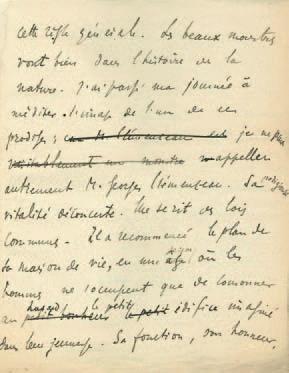 cette règle générale. Les beaux monstres
vont bien dans l'histoire de la
nature. J'ai passé ma journée à
méditer l'image de l'un de ces
prodiges ; car M. Clémenceau est je ne peux
véritablement un monstre appeler
autrement M. Georges Clémenceau. Sa prodigieuse
vitalité déconcerte. Elle se rit des lois
communes. Il a recommencé le plan de
sa maison de vie, en un âge où les
hommes ne s'occupent que de couronner
au hasard le petit édifice imaginé
dans leur jeunesse. Sa fonction, son honneur,